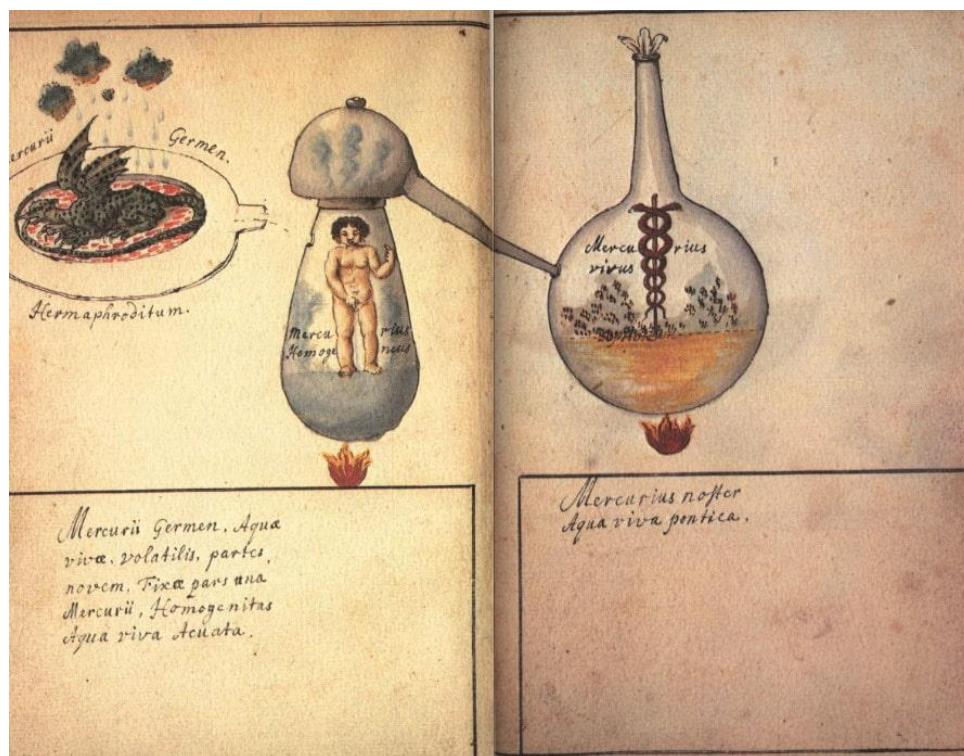 Mercurii Germen.
Hermaphroditum.
Mercurius
Homogeneus
Mercurius
vivus
Mercurii Germen, Aquæ
vivæ, volatilis, partes
novem, Fixæ pars una
Mercurii, Homogenitas
Aqua viva Acuata.
Mercurius noster
Aqua viva pontica.